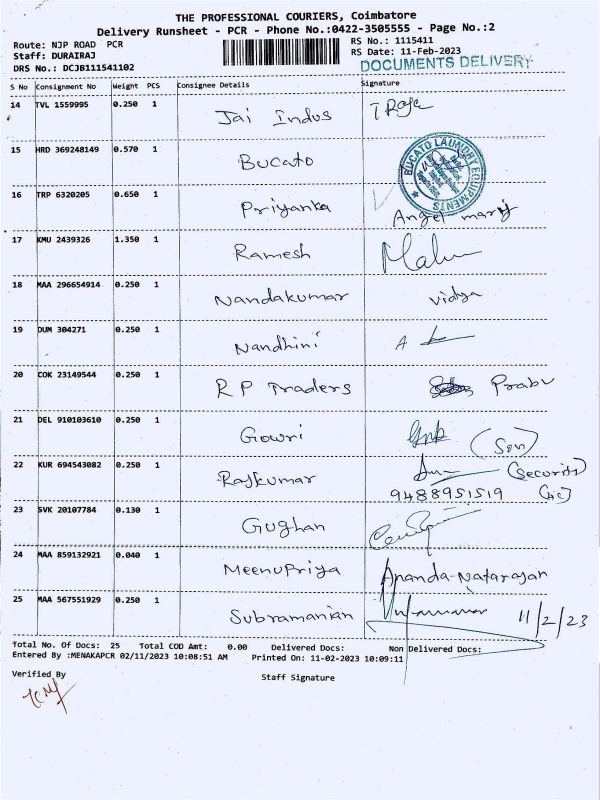 THE PROFESSIONAL COURIERS, Coimbatore
Delivery Runsheet - PCR - Phone No.:0422-3505555 - Page No.:2
Route: NJP ROAD PCR
RS No.: 1115411
Staff: DURAIRAJ
RS Date: 11-Feb-2023
DRS No.: DCJB111541102
DOCUMENTS DELIVERY
S No Consignment No Weight PCS Consignee Details Signature
14 TVL 1559995 0.250 1 Jai Indus T Raja
15 HRD 369248149 0.570 1 Bucato
BUCATO LAUNDRY EQUIPMENTS
16 TRP 6320205 0.650 1 Priyanka Angel mary
17 KMU 2439326 1.350 1 Ramesh
18 MAA 296654914 0.250 1 Nandakumar vidya
19 DUM 304271 0.250 1 Nandhini A
20 COK 23149544 0.250 1 R P Traders Prabu
21 DEL 910103610 0.250 1 Gowri (Son)
22 KUR 694543082 0.250 1 Rajkumar (Security)
9488951519
23 SVK 20107784 0.130 1 Gughan
24 MAA 859132921 0.040 1 MeenuPriya Ananda-Natarajan
25 MAA 567551929 0.250 1 Subramanian 11/2/23
Total No. Of Docs: 25 Total COD Amt: 0.00 Delivered Docs: Non Delivered Docs:
Entered By :MENAKAPCR 02/11/2023 10:08:51 AM Printed On: 11-02-2023 10:09:11
Verified By
Staff Signature